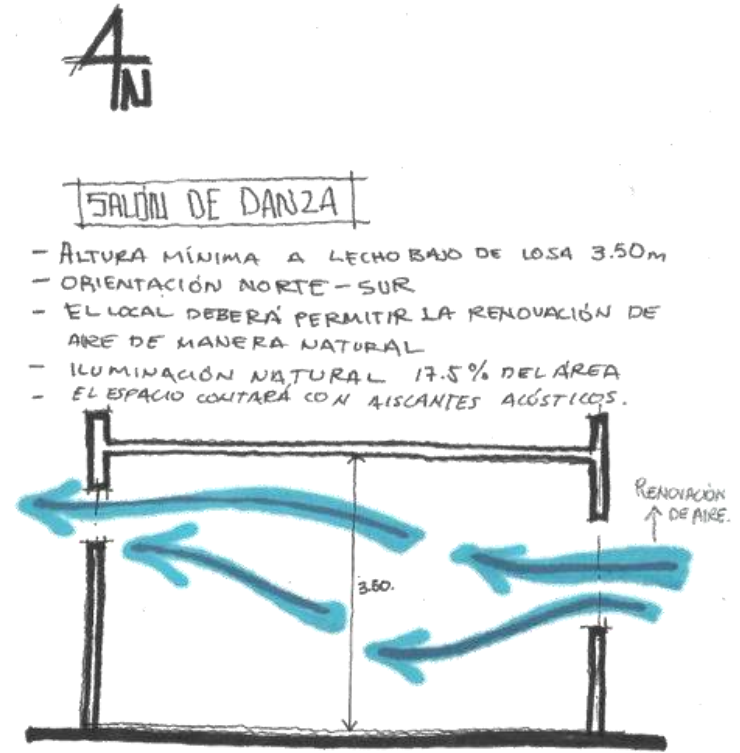 N
SALÓN DE DANZA
- ALTURA MÍNIMA A LECHO BAJO DE LOSA 3.50m
- ORIENTACIÓN NORTE-SUR
- EL LOCAL DEBERÁ PERMITIR LA RENOVACIÓN DE
AIRE DE MANERA NATURAL
- ILUMINACIÓN NATURAL 17.5% DEL ÁREA
- EL ESPACIO CONTARÁ CON AISLANTES ACÚSTICOS.
RENOVACIÓN
DE AIRE.
3.50.